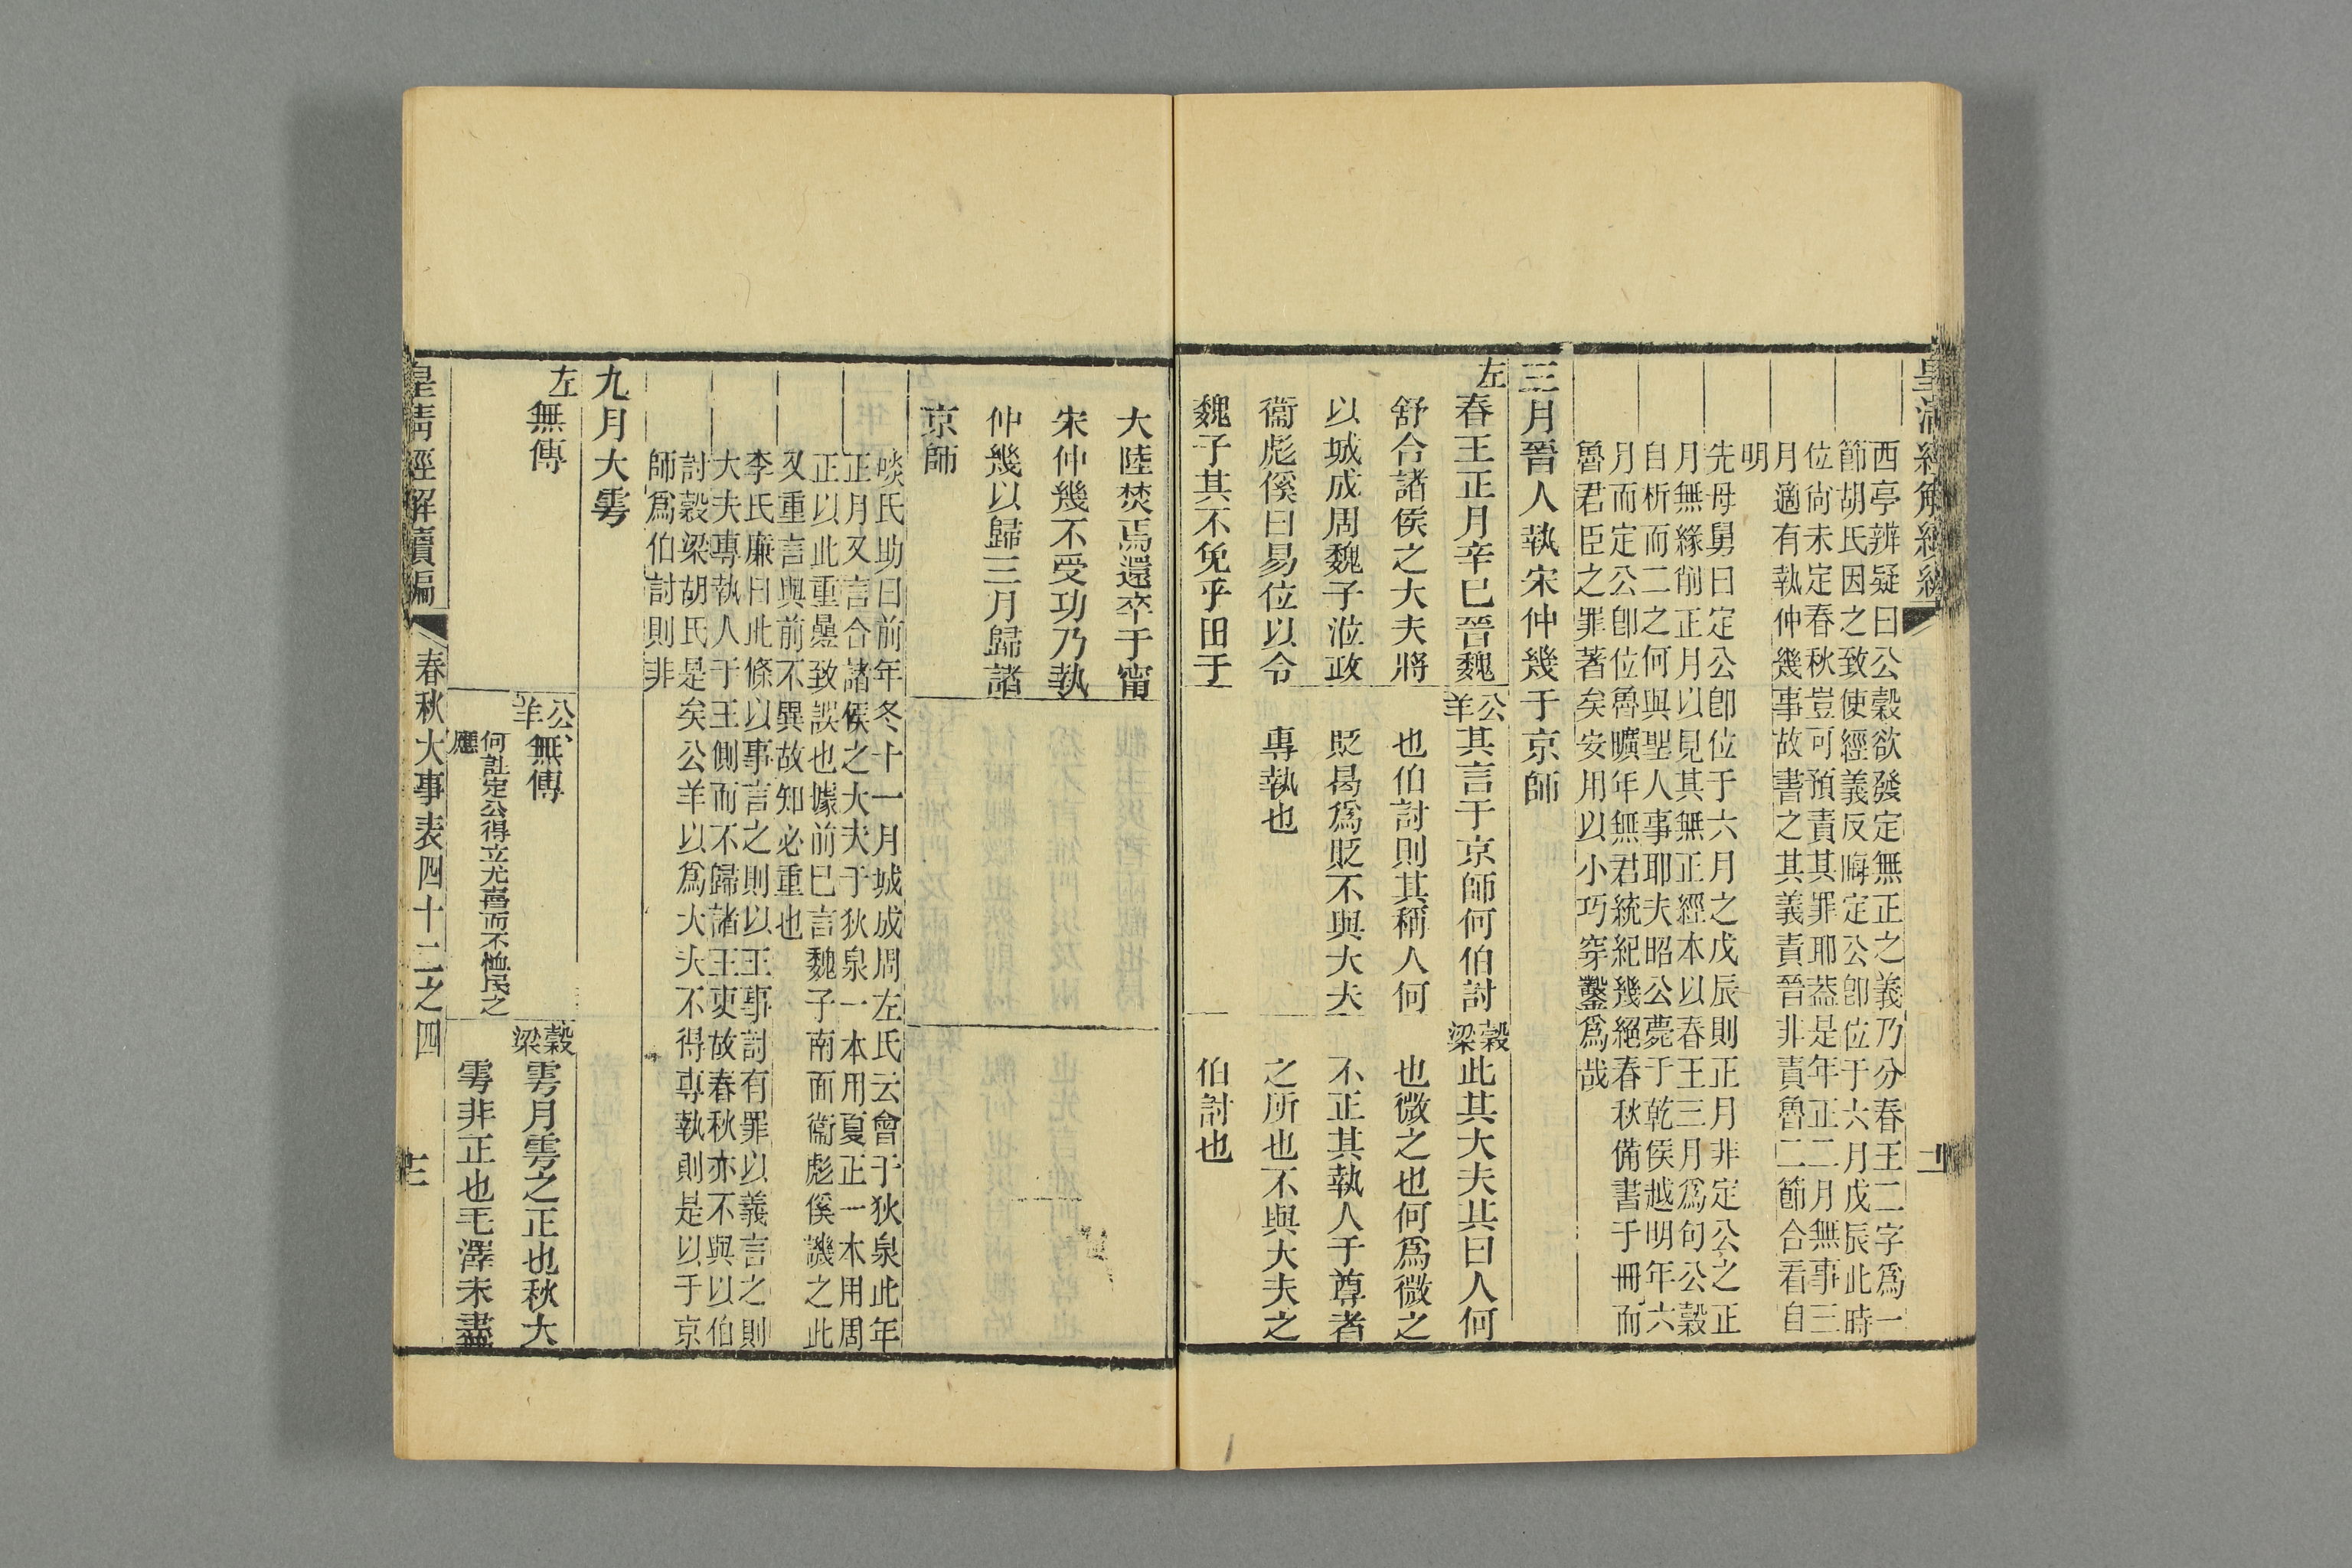 西亭辨疑曰公穀欲發定無正之義乃分春王二字爲一
節胡氏因之致使經義反晦定公卽位于六月戊辰此時
位尚未定春秋豈可預責其罪耶葢是年正二月無事三
月適有執仲幾事故書之其義責晉非責魯二節合看自
明
先母舅曰定公卽位于六月之戊辰則正月非定公之正
月無緣削正月以見其無正經本以春王三月爲句公穀
自析而二之何與聖人事耶夫昭公薨于乾侯越明年六
月而定公卽位魯曠年無君統紀幾絕春秋備書于冊而
魯君臣之罪著矣安用以小巧穿鑿爲哉
三月晉人執宋仲幾于京師
左春王正月辛巳晉魏
舒合諸侯之大夫將
以城成周魏子涖政
衞彪傒曰易位以令
魏子其不免乎田于
公羊其言于京師何伯討
也伯討則其稱人何
貶曷爲貶不與大夫
專執也
穀梁此其大夫其曰人何
也微之也何爲微之
不正其執人于尊者
之所也不與大夫之
伯討也
大陸焚焉還卒于甯
宋仲幾不受功乃執
仲幾以歸三月歸諸
京師
啖氏助曰前年冬十一月城成周左氏云會于狄泉此年
正月又言合諸侯之大夫于狄泉一本用夏正一本用周
正以此重疊致誤也據前已言魏子南面衞彪傒譏之此
又重言與前不異故知必重也
李氏廉曰此條以事言之則以王事討有罪以義言之則
大夫專執人于王側而不歸諸王吏故春秋亦不與以伯
討穀梁胡氏是矣公羊以爲大夫不得專執則是以于京
師爲伯討則非
九月大雩
左無傳
公羊無傳
何註定公得立尤喜而不恤民之
應
穀梁雩月雩之正也秋大
雩非正也毛澤未盡
皇清經解續編
春秋大事表四十二之四